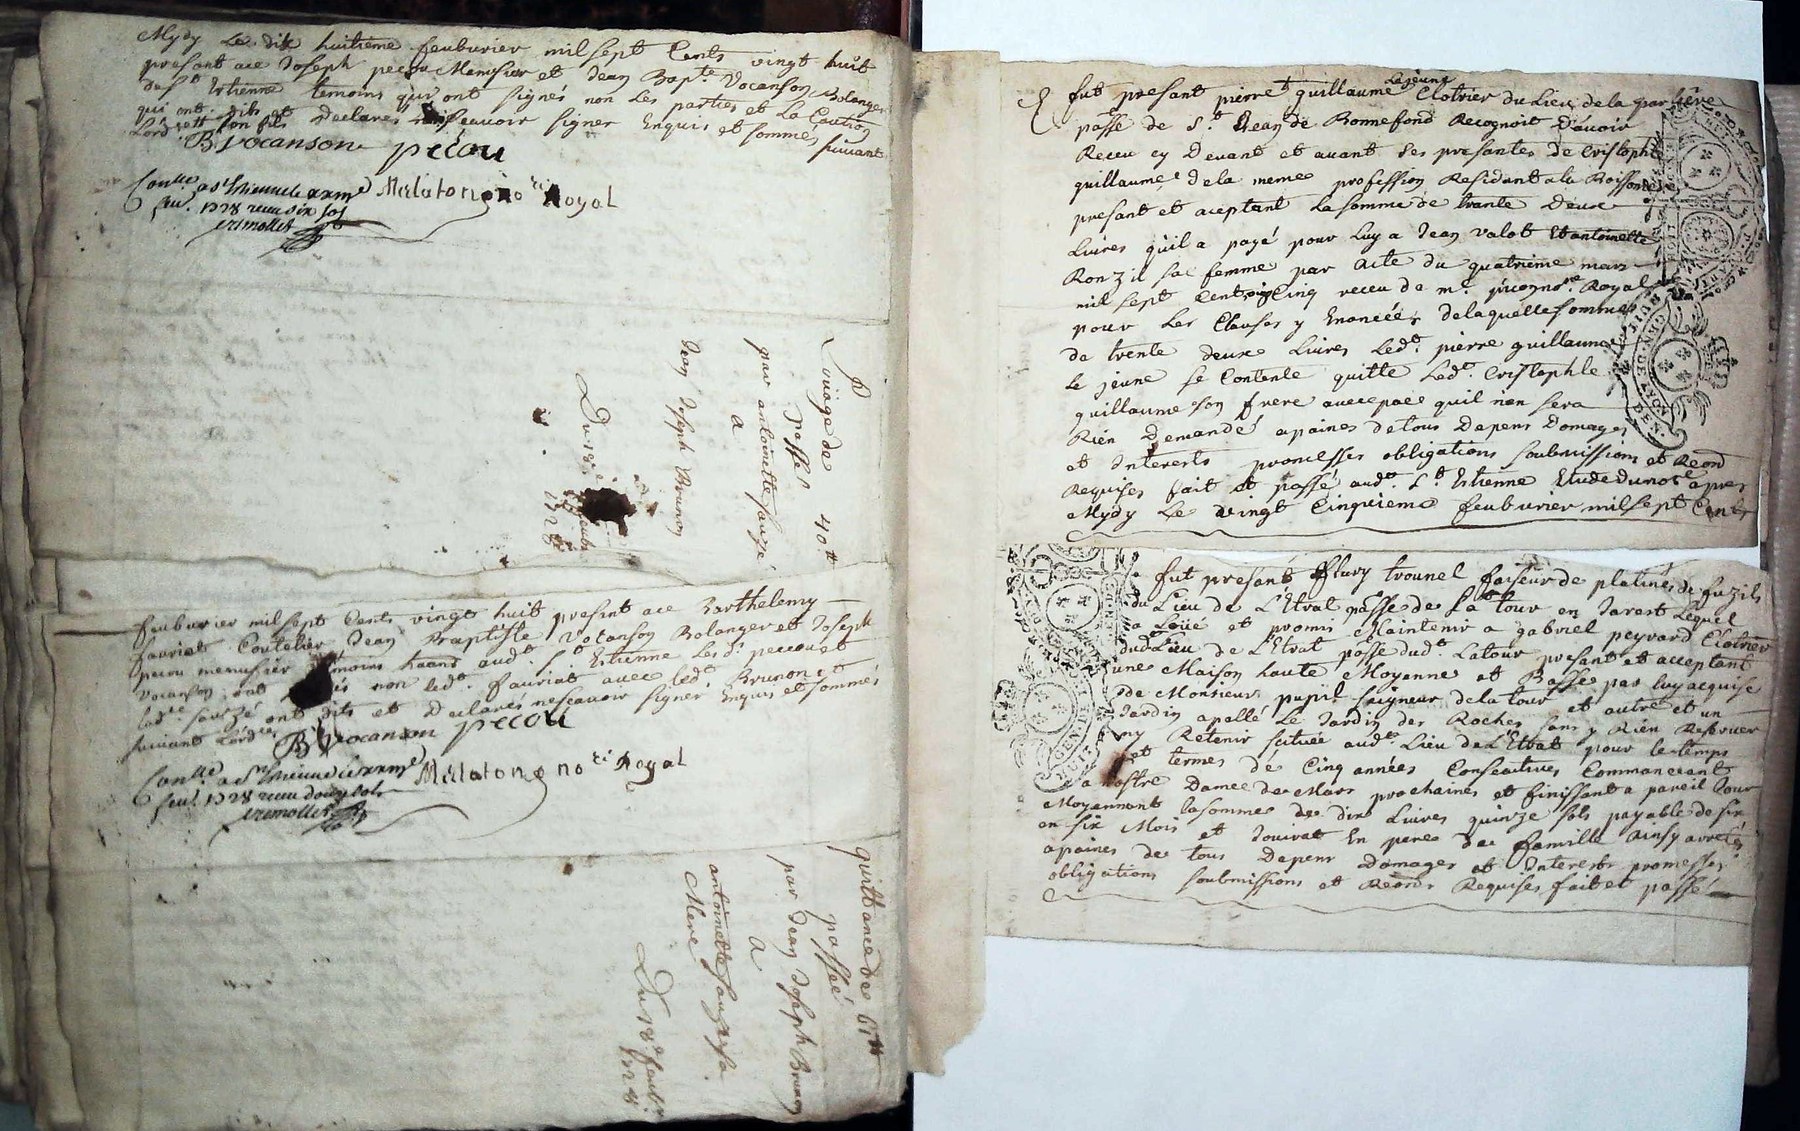 Mydy Le dix huitieme feuburier mil sept Cents vingt huit
presant ace Joseph pecou Menusier et Jean Bapte. Vocanson Bolanger
de St. Estienne temoins qui ont signés non Les parties et La Caution
qui ont dits et Declarés ne sçeavoir signer Enquis et sommés suivant
Lord et son fils
B Vocanson pecou
Conllé a St Estienne le
feu. 1728 receu six sols
Malaton no.re Royal
Louiage de 40tt
passé
par antoinette sauzé
A
Jean Joseph Brunon
Du 18e
1728
feuburier mil sept Cents vingt huit presint ace Barthelemy
fauriat Coutelier Jean Baptiste Votanson Bolanger et Joseph
pecou menusier temoins haans audt. St. Estienne Les ds. pecou et
Vocanson ont non ledt. fauriat avec ledt. Brunon et
ladte. sauzé ont dits et Declarés ne sçavoir signer Enquis et sommés
suivant Lordce.
B Vocanson pecou
Conllé a St Estienne le
feu. 1728 receu douze sols
Malaton no.re Royal
quittance de
passée
par Jean Joseph Brunon
A
antoinette sauze sa
Mere
Du 18e feubr.
1728
fut presant pierre guillaume Lejeune Clotrier du Lieu de la
passe de St. Jean de Bonnefond Recognoit D'avoir
Receu cy Devant et avant Ses presantes de Cristophle
guillaume de la meme profession Residant a la
presant et aceptant La somme de trante Deux
Livres qu'il a payé pour Luy a Jean Valot Et antoinette
Ronzil sa femme par Acte du quatrieme mars
mil sept Cent Cinq receu de me. Royal
pour Les Clauses y Enoncées de laquelle somme
de trente deux Livres Ledt. pierre guillaume
Le jeune se Contente quitte Ledt. Cristophle
guillaume son frere avec pace quil n'en sera
Rien Demandé a paines de tous Depens Domages
et Interests promesses obligations soubmissions et Reond
Requises fait et passé audt. St. Estienne Etude du nore. apres
Mydy Le Vingt Cinquieme feuburier mil sept Cents
fut presant fflury trounel faiseur de platines de fuzils
du Lieu de L'Etrat passe de La tour en Jarest Lequel
a Loüe et promis Maintenir a gabriel peyrard Clotrier
dud Lieu de L'Etrat passe dudt. Latour presant et acceptant
une Maison haute Moyenne et Basse par luy acquise
de Monsieur pupil seigneur de la tour et autre et un
Jardin apellé Le Jardin des Roches sans y Rien Reserver
ny Retenir scituée audt. Lieu de L'Etrat pour le temps
et termes de Cinq années Conseutives Commancant
a nostre Dame de Mars prochaines et finissant a pareil Jour
Moyennant la somme de dix Livres quinze sols payable de six
en six Mois et Jouirat En pere de famille Ainsy arretés
a paines de tous Depens Domages et Interests promesses
obligations soubmissions et Reonds Requises fait et passé